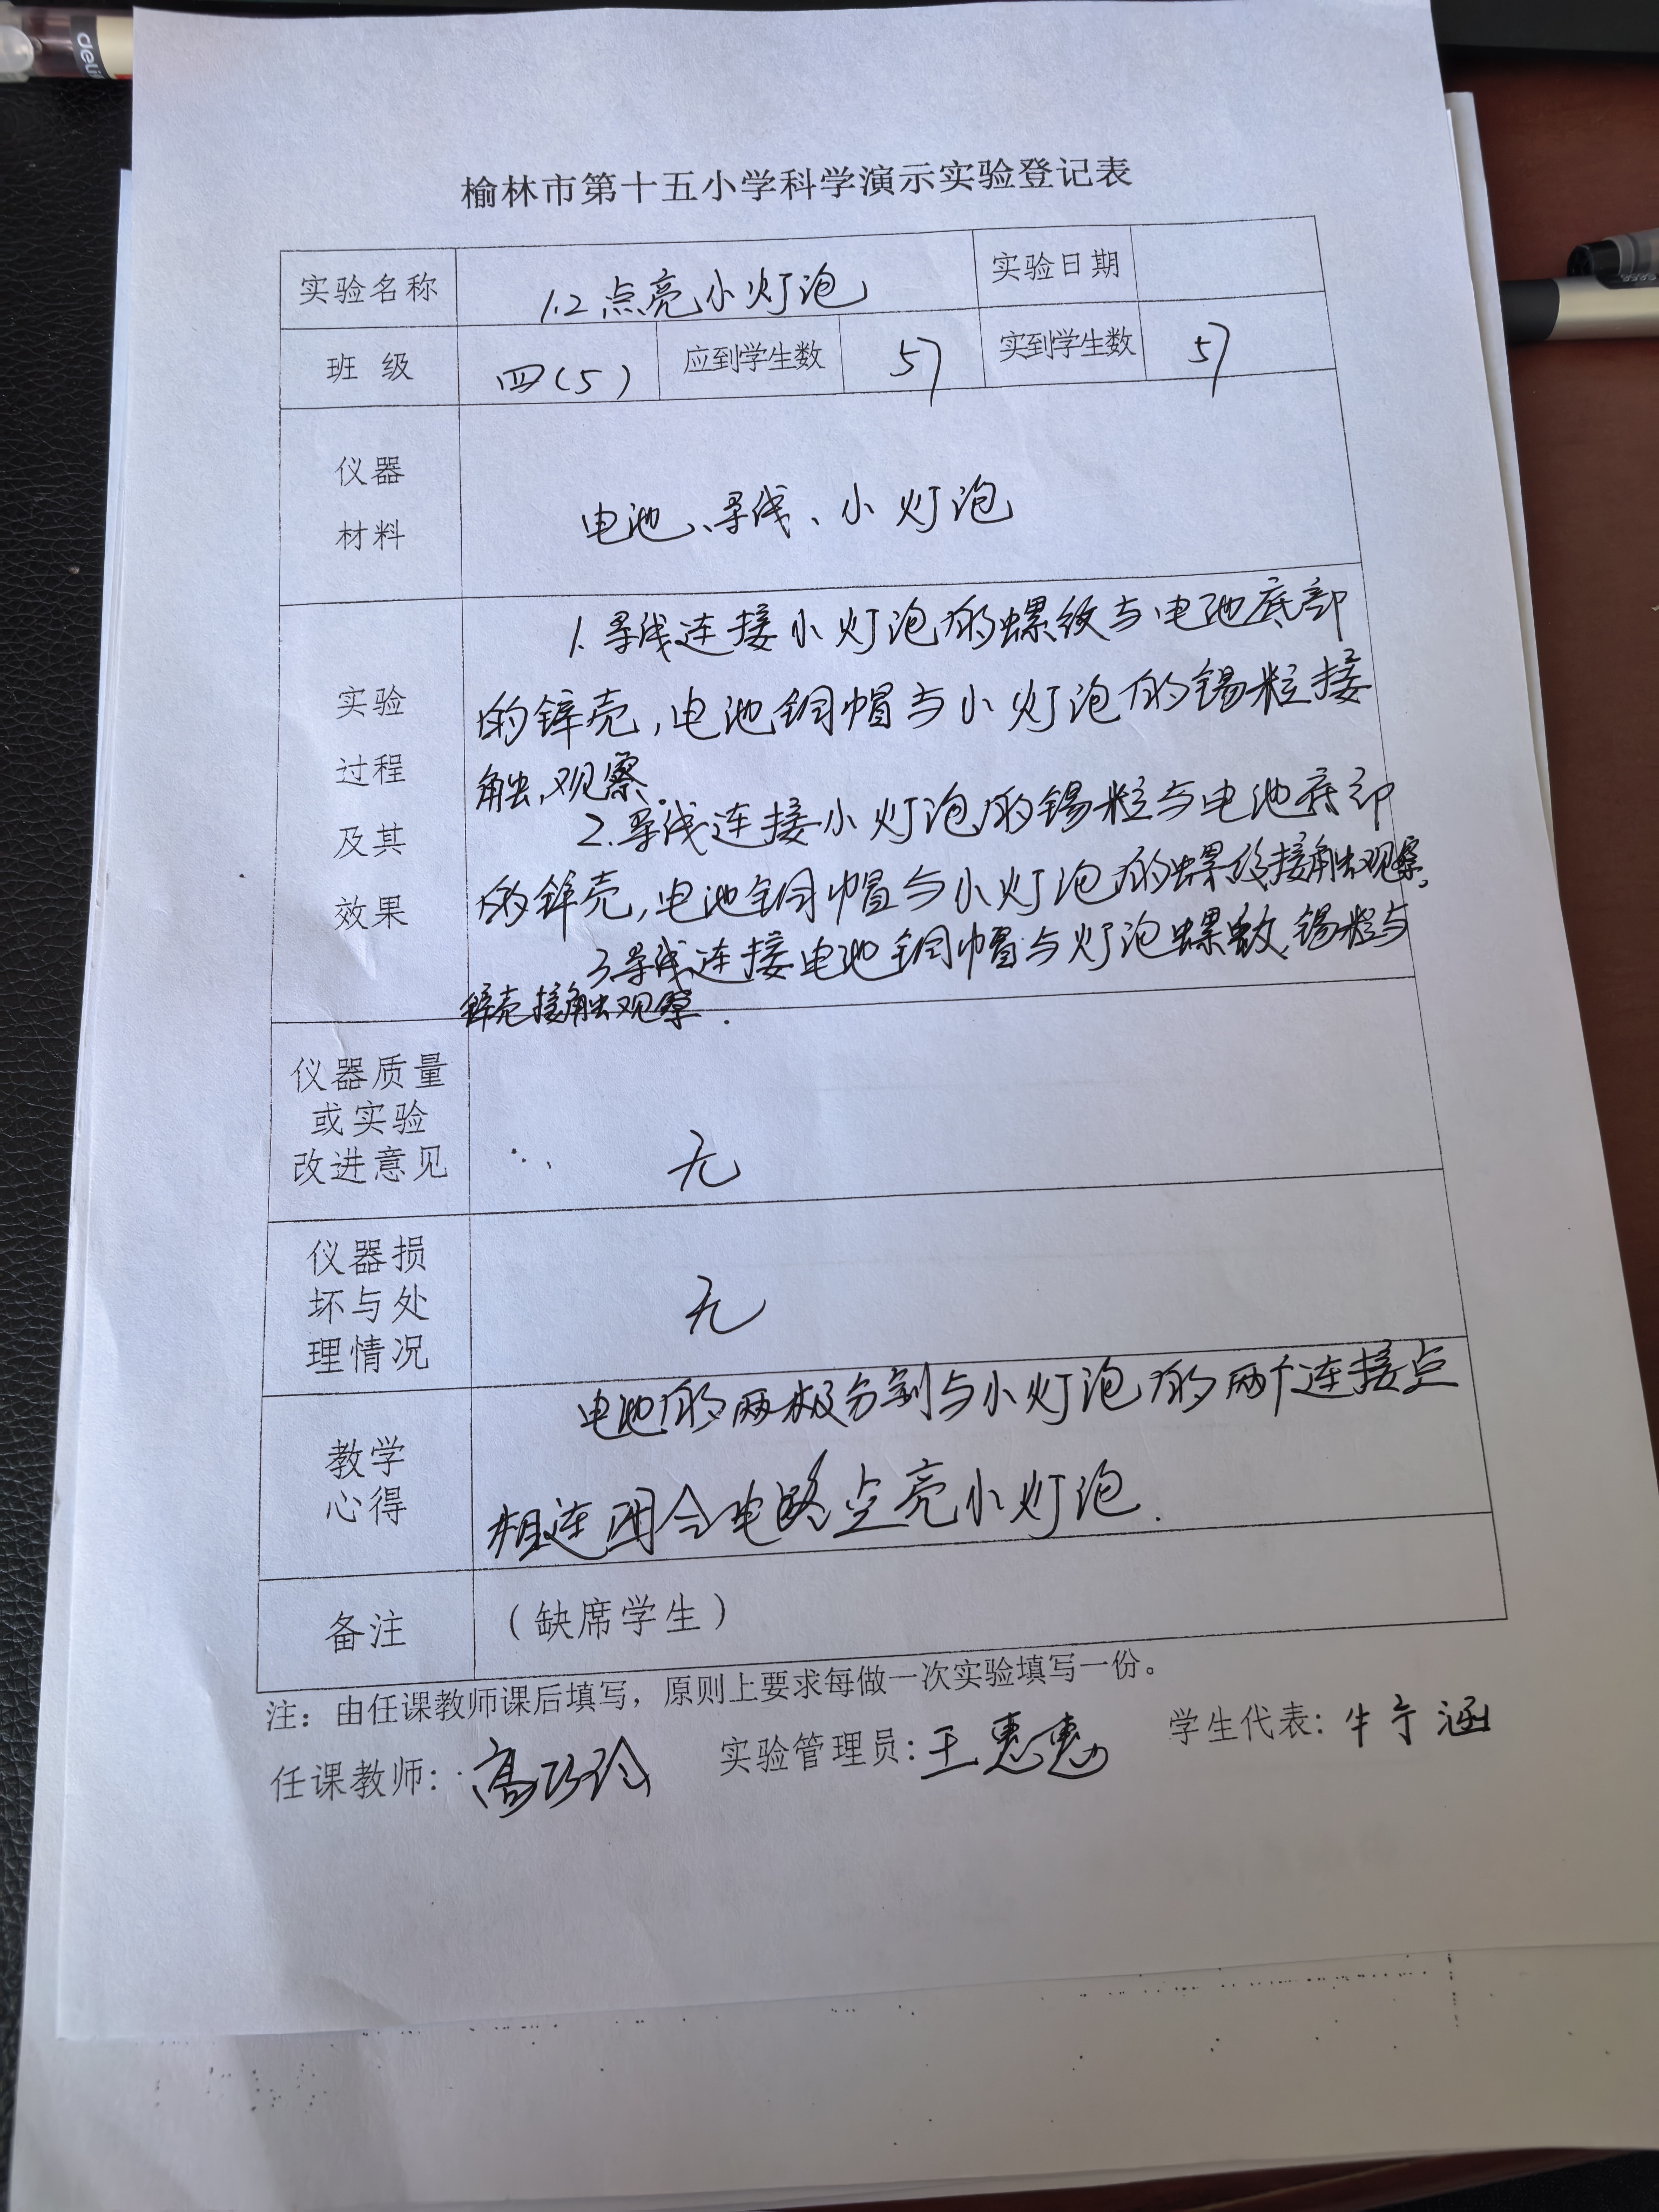 deli
榆林市第十五小学科学演示实验登记表
实验名称 1.2 点亮小灯泡 实验日期
班 级 四(5) 应到学生数 57 实到学生数 57
仪器
材料
电池、导线、小灯泡
实验
过程
及其
效果
1. 导线连接小灯泡的螺纹与电池底部
的锌壳,电池铜帽与小灯泡的锡粒接
触,观察.
2. 导线连接小灯泡的锡粒与电池底部
的锌壳,电池铜帽与小灯泡的螺纹接触观察.
3.导线连接电池铜帽与灯泡螺纹,锡粒与
锌壳接触观察.
仪器质量
或实验
改进意见
无
仪器损
坏与处
理情况
无
教学
心得
电池的两极分别与小灯泡的两个连接点
相连闭合电路点亮小灯泡.
备注 (缺席学生)
注:由任课教师课后填写,原则上要求每做一次实验填写一份。
任课教师: 高巧玲 实验管理员: 王惠惠 学生代表: 牛宁涵